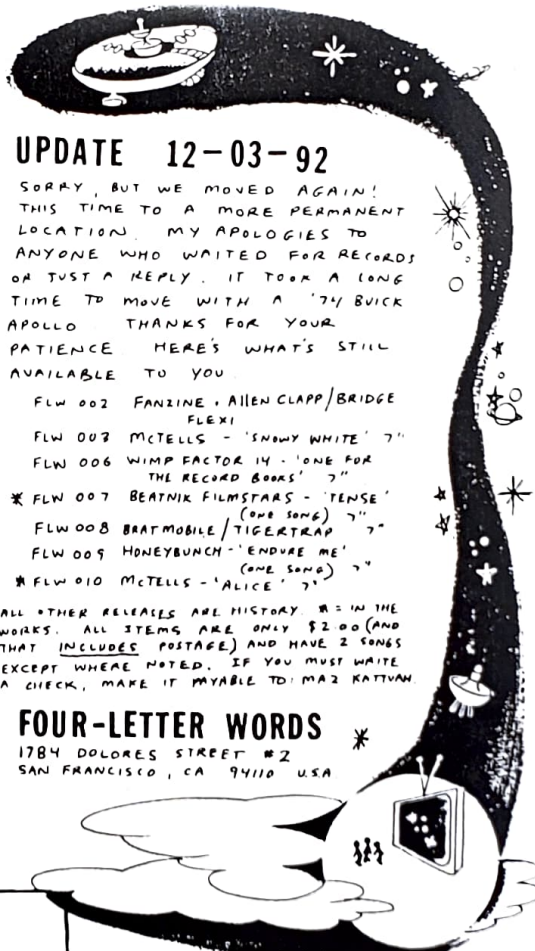 UPDATE 12-03-92
SORRY, BUT WE MOVED AGAIN!
THIS TIME TO A MORE PERMANENT
LOCATION. MY APOLOGIES TO
ANYONE WHO WAITED FOR RECORDS
OR JUST A REPLY. IT TOOK A LONG
TIME TO MOVE WITH A '74 BUICK
APOLLO THANKS FOR YOUR
PATIENCE HERE'S WHAT'S STILL
AVAILABLE TO YOU
FLW 002 FANZINE + ALLEN CLAPP/BRIDGE
FLEXI
FLW 003 McTELLS - 'SNOWY WHITE' 7"
FLW 006 WIMP FACTOR 14 - 'ONE FOR
THE RECORD BOOKS' 7"
* FLW 007 BEATNIK FILMSTARS - 'TENSE'
(ONE SONG) 7"
FLW 008 BRATMOBILE/TIGERTRAP 7"
FLW 009 HONEYBUNCH - 'ENDURE ME'
(ONE SONG) 7"
* FLW 010 McTELLS - 'ALICE' 7"
ALL OTHER RELEASES ARE HISTORY. * = IN THE
WORKS. ALL ITEMS ARE ONLY $2.00 (AND
THAT INCLUDES POSTAGE) AND HAVE 2 SONGS
EXCEPT WHERE NOTED. IF YOU MUST WRITE
A CHECK, MAKE IT PAYABLE TO: MAZ KATTUAH.
FOUR-LETTER WORDS *
1784 DOLORES STREET #2
SAN FRANCISCO, CA 94110 U.S.A.